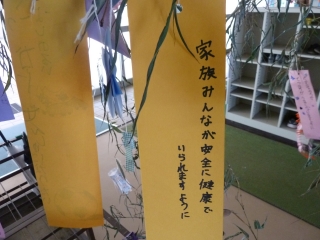 家族みんなが安全に健康で
いられますように